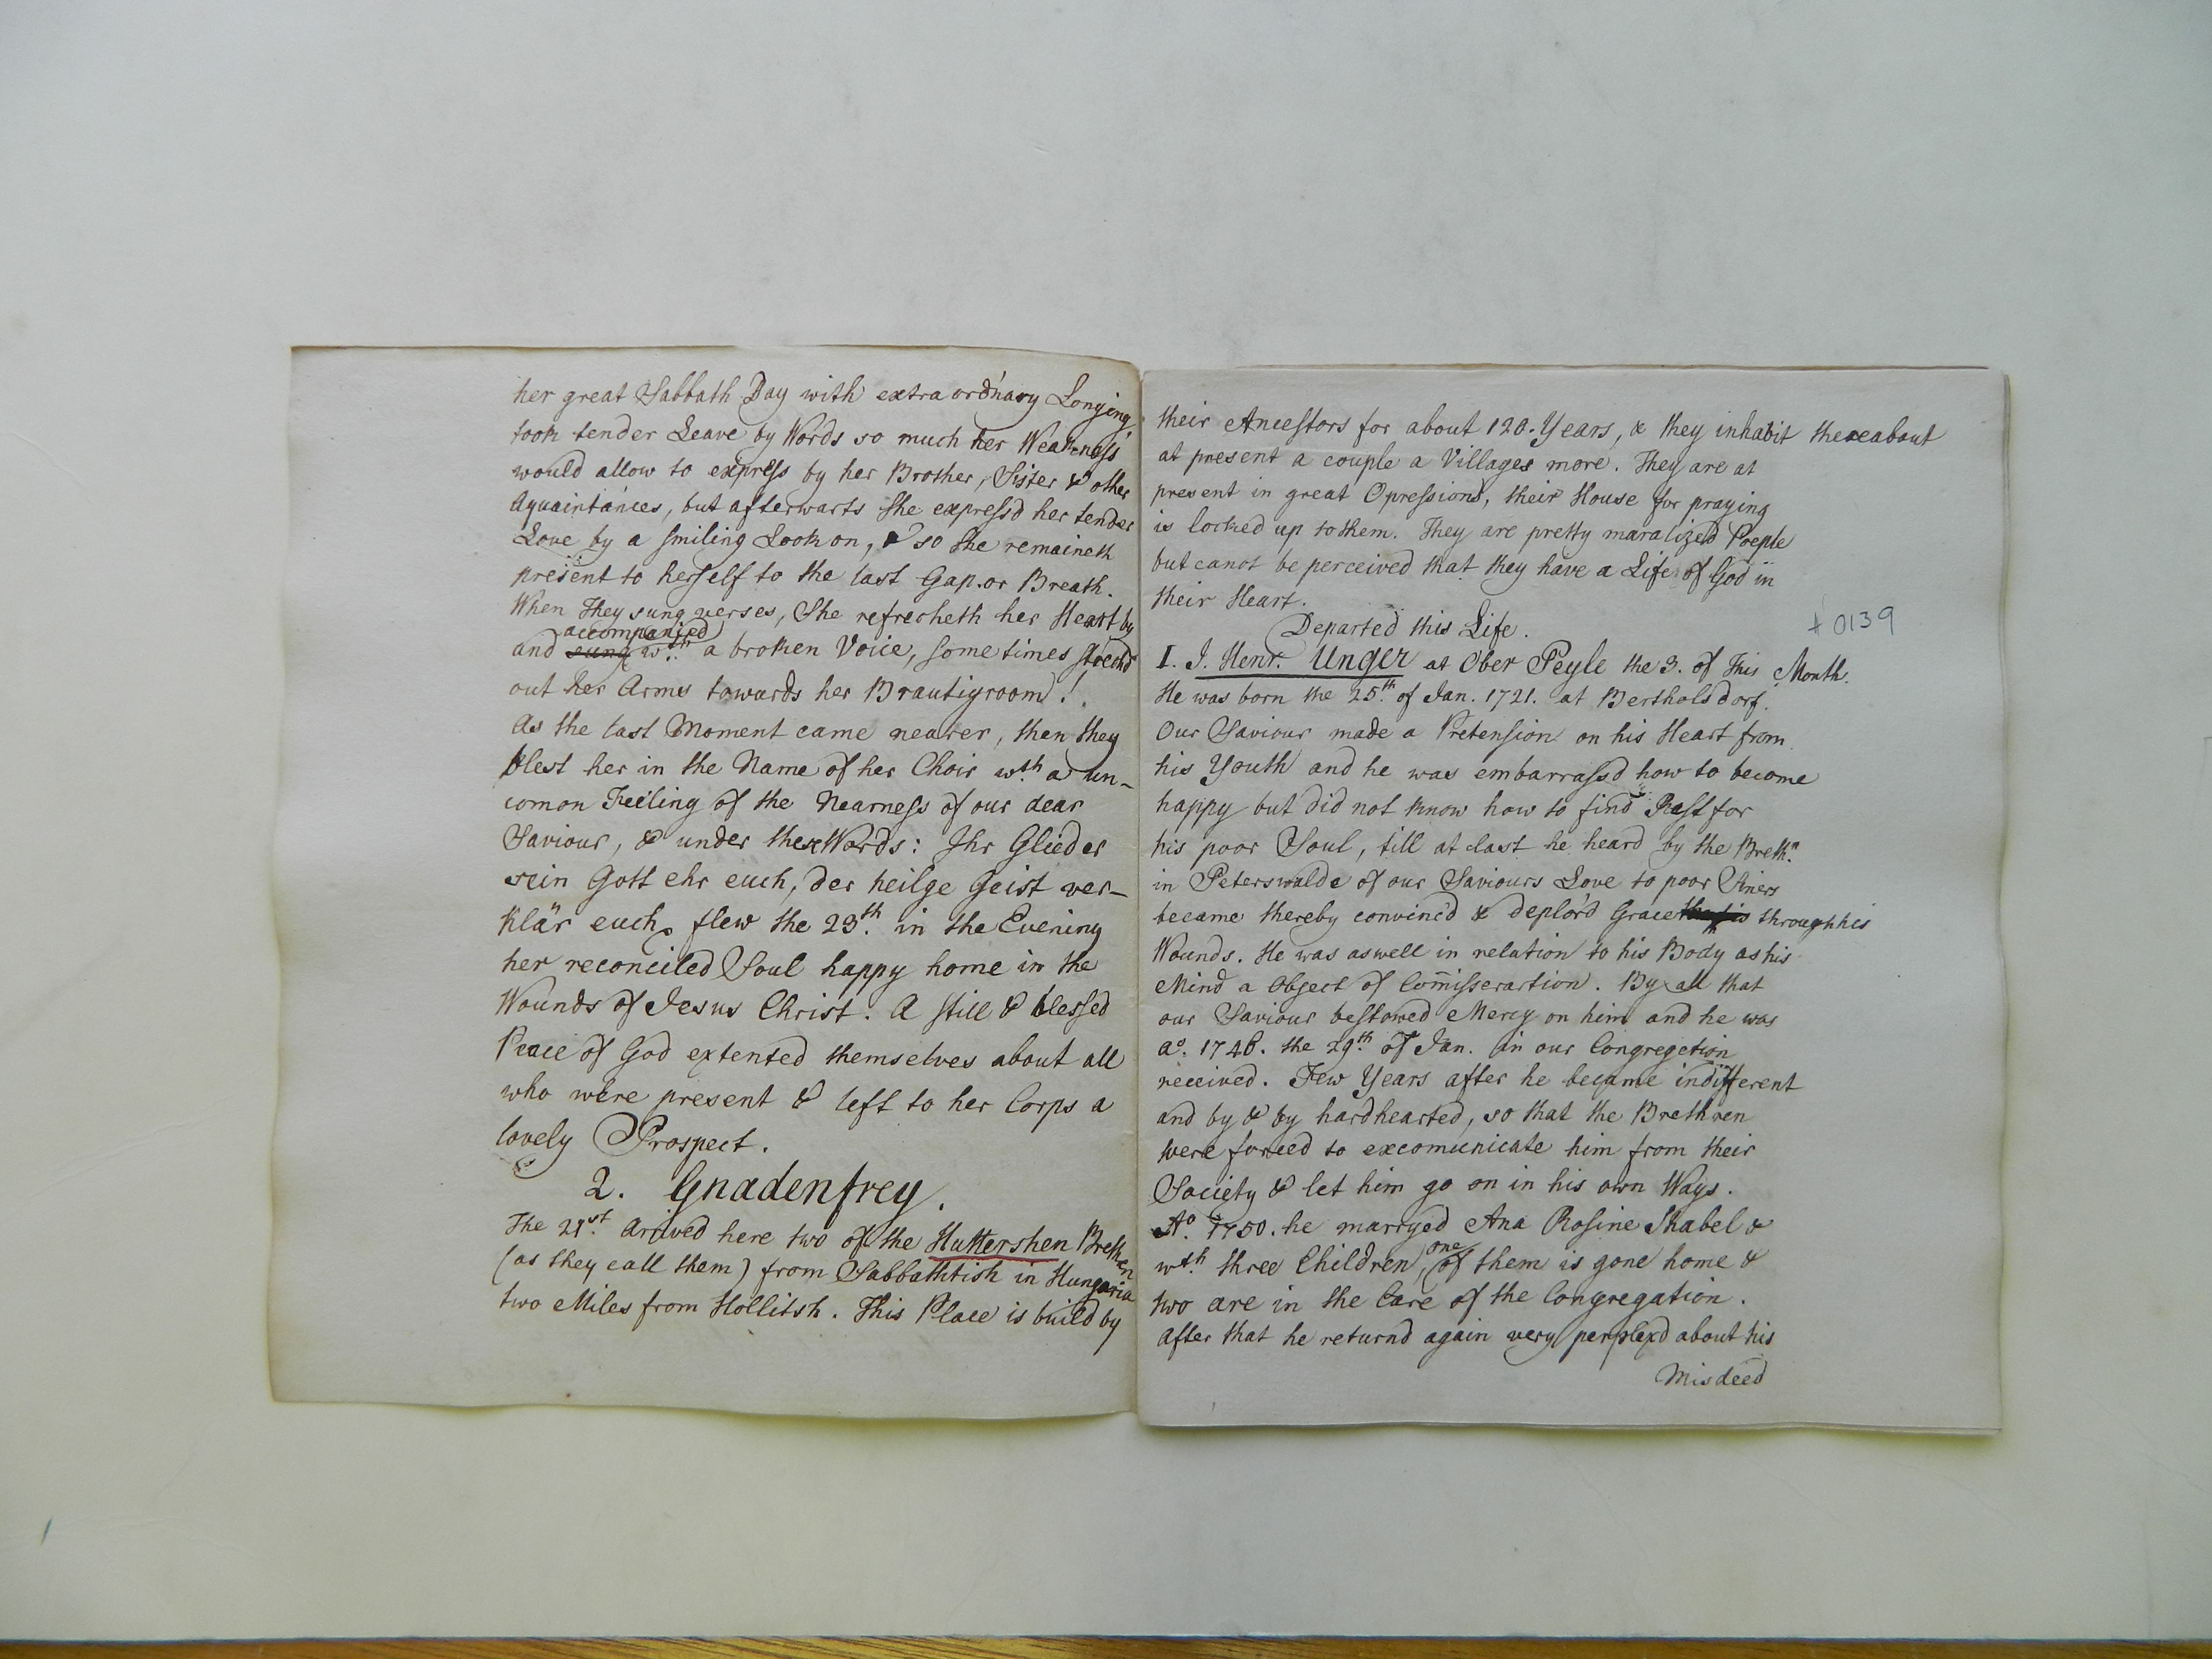 her great Sabbath Day with extraord'nary Longing
took tender Leave by Words so much her Weakness
would allow to express by her Brother, Sister & other
Aquaintances, but afterwarts She express'd her tender
Love by a smiling Look on, & so She remaineth
present to herself to the last Gap or Breath.
When They sung verses, She refresheth her Heart by
accompanied
and sung wth a broken Voice, some times
out her Arms towards her Brautigroom!
As the last Moment came nearer, then they
blest her in the Name of her Choir wth a un-
comon Feeling of the Nearness of our dear
Saviour, & under these Words: Ihr Glieder
sein Gott ehr euch, der heilge Geist ver-
klär euch, flew the 23th in the Evening
her reconciled Soul happy home in the
Wounds of Jesus Christ. A still & blessed
Peace of God extented themselves about all
who were present & left to her Corps a
lovely Prospect.
2. Gnadenfrey.
The 21st arived here two of the Huttershen Brethen
(as they call them) from Sabbathtish in Hungaria
two Miles from Hollitsh. This Place is build by
their Ancestors for about 120. Years, & they inhabit thereabout
at present a couple a Villages more. They are at
present in great Opressions, their House for praying
is locked up to them. They are pretty maralized Poeple
but canot be perceived that they have a Life of God in
their Heart.
Departed this Life.
# 0139
I. J. Henr. Unger at Ober Peyle the 3. of This Month.
He was born the 25th of Jan. 1721. at Bertholsdorf.
Our Saviour made a Pretension on his Heart from
his Youth and he was embarrass'd how to become
happy but did not know how to find Rest for
his poor Soul, till at last he heard by the Brethn
in Peterswalde of our Saviours Love to poor Siners
became thereby convinc'd & deplor'd Grace through his
Wounds. He was aswell in relation to his Body as his
Mind a Object of Comisserartion. By all that
our Saviour bestowed Mercy on him and he was
ao. 1748. the 29th of Jan. in our Congregetion
received. Few Years after he became indifferent
and by & by hardhearted, so that the Brethren
were forced to excomunicate him from their
Society & let him go on in his own Ways.
Ao. 1750. he marryed Ana Rosine Shabel &
one
wth three Children, of them is gone home &
two are in the Care of the Congregation.
After that he returnd again very perplex'd about his
Misdeed